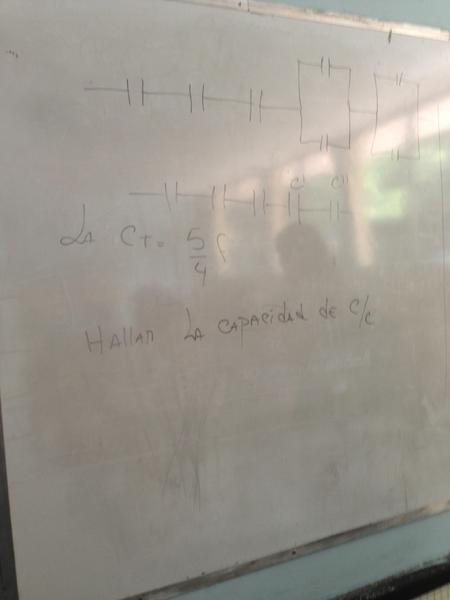 C' C''
La CT = 5/4 f
HAllAR LA CAPACIDAD de c/c